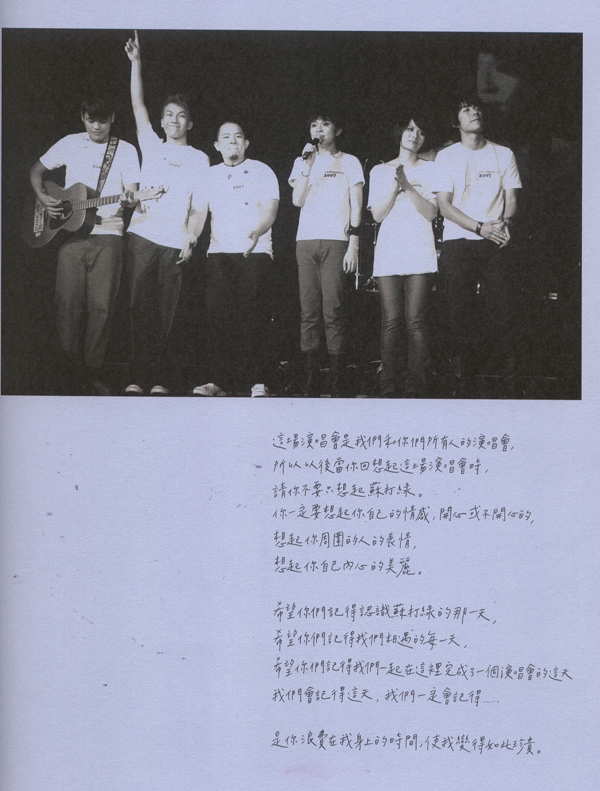 2007
2007
2007
2007
這場演唱會是我們和你們所有人的演唱會,
所以以後當你回想起這場演唱會時,
請你不要只想起蘇打綠。
你一定要想起你自己的情感,開心或不開心的,
想起你周圍的人的表情,
想起你自己內心的美麗。
希望你們記得認識蘇打綠的那一天,
希望你們記得我們相遇的每一天,
希望你們記得我們一起在這裡完成了一個演唱會的這天
我們會記得這天,我們一定會記得……
是你浪費在我身上的時間,使我變得如此珍貴。